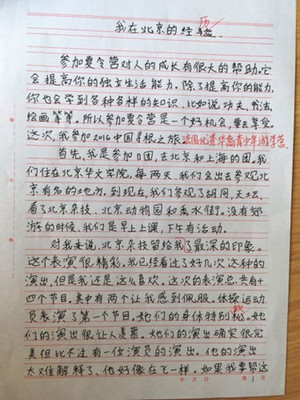 我在北京的经历
参加夏令营对人的成长有很大的帮助。它
会提高你的独立生活能力。除了提高你的能力,
你也会学到各种各样的知识、比如说功夫、书法、
绘画等等。所以参加夏令营是一个好机会,
这次,我参加2016中国寻根之旅
首先,我是参加D团,去北京和上海的团。我
们住在北京华文学院。每两天,我们会出去参观北
京有名的地方。到现在,我们参观了胡同,天坛、
看了北京杂技、北京动物园和秀水街。没有郊
游的时候,我们是早上上课,下午有活动。
对我来说,北京杂技留给我了最深的印象。
这个表演很精彩。我已经看过了好几次这种的
演出,但是我还是这么喜欢。这次的表演总共有十
四个节目。其中有两个让我感到佩服。体操运动
员表演了第一个节目。她们的身体特别软。她
们的演出很让人羡慕。她们的演出确实很完
美但比不过有一位演员的演出。他的演出
太难解释了、他好像在飞一样。如果我要帮这